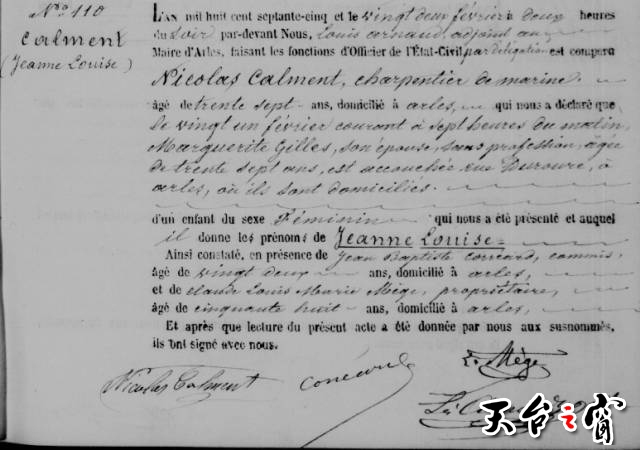 N° 110
Calment
(Jeanne Louise)
L'AN mil huit cent septante-cinq et le vingt deux février à deux heures
du soir par-devant Nous, Louis Arnaud, adjoint au
Maire d'Arles, faisant les fonctions d'Officier de l'État-Civil par délégation est comparu
Nicolas Calment, charpentier de marine
âgé de trente sept ans, domicilié à arles, qui nous a déclaré que
le vingt un février courant à sept heures du matin,
Marguerite Gilles, son épouse, sans profession, âgée
de trente sept ans, est accouchée rue Duroure, à
arles, où ils sont domiciliés.
d'un enfant du sexe Féminin qui nous a été présenté et auquel
il donne les prénoms de Jeanne Louise
Ainsi constaté, en présence de Jean Baptiste Concard, commis,
âgé de vingt deux ans, domicilié à arles,
et de claude Louis Marie Mège, propriétaire,
âgé de cinquante huit ans, domicilié à arles,
Et après que lecture du présent acte a été donnée par nous aux susnommés,
ils ont signé avec nous.
Nicolas Calment
L. Mège
天台之窗